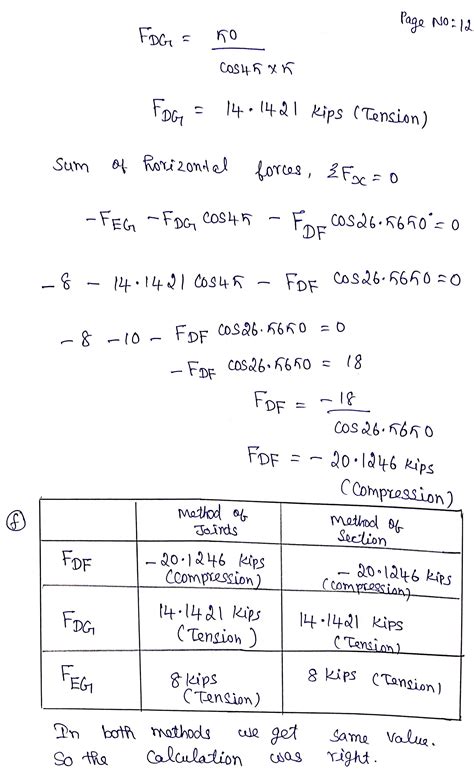 Page No:12
F_DG = 50 / cos45 × 5
F_DG = 14.1421 kips (Tension)
Sum of horizontal forces, ΣFx = 0
-F_EG - F_DG cos45 - F_DF cos26.5650° = 0
-8 - 14.1421 cos45 - F_DF cos26.5650 = 0
-8 -10 - F_DF cos26.5650 = 0
-F_DF cos26.5650 = 18
F_DF = -18 / cos26.5650
F_DF = -20.1246 kips
(Compression)
(f)
Method of Joints
Method of Section
F_DF
-20.1246 kips
(Compression)
-20.1246 kips
(compression)
F_DG
14.1421 kips
(Tension)
14.1421 kips
(Tension)
F_EG
8 kips
(Tension)
8 kips (Tension)
In both methods we get same value.
So the calculation was right.